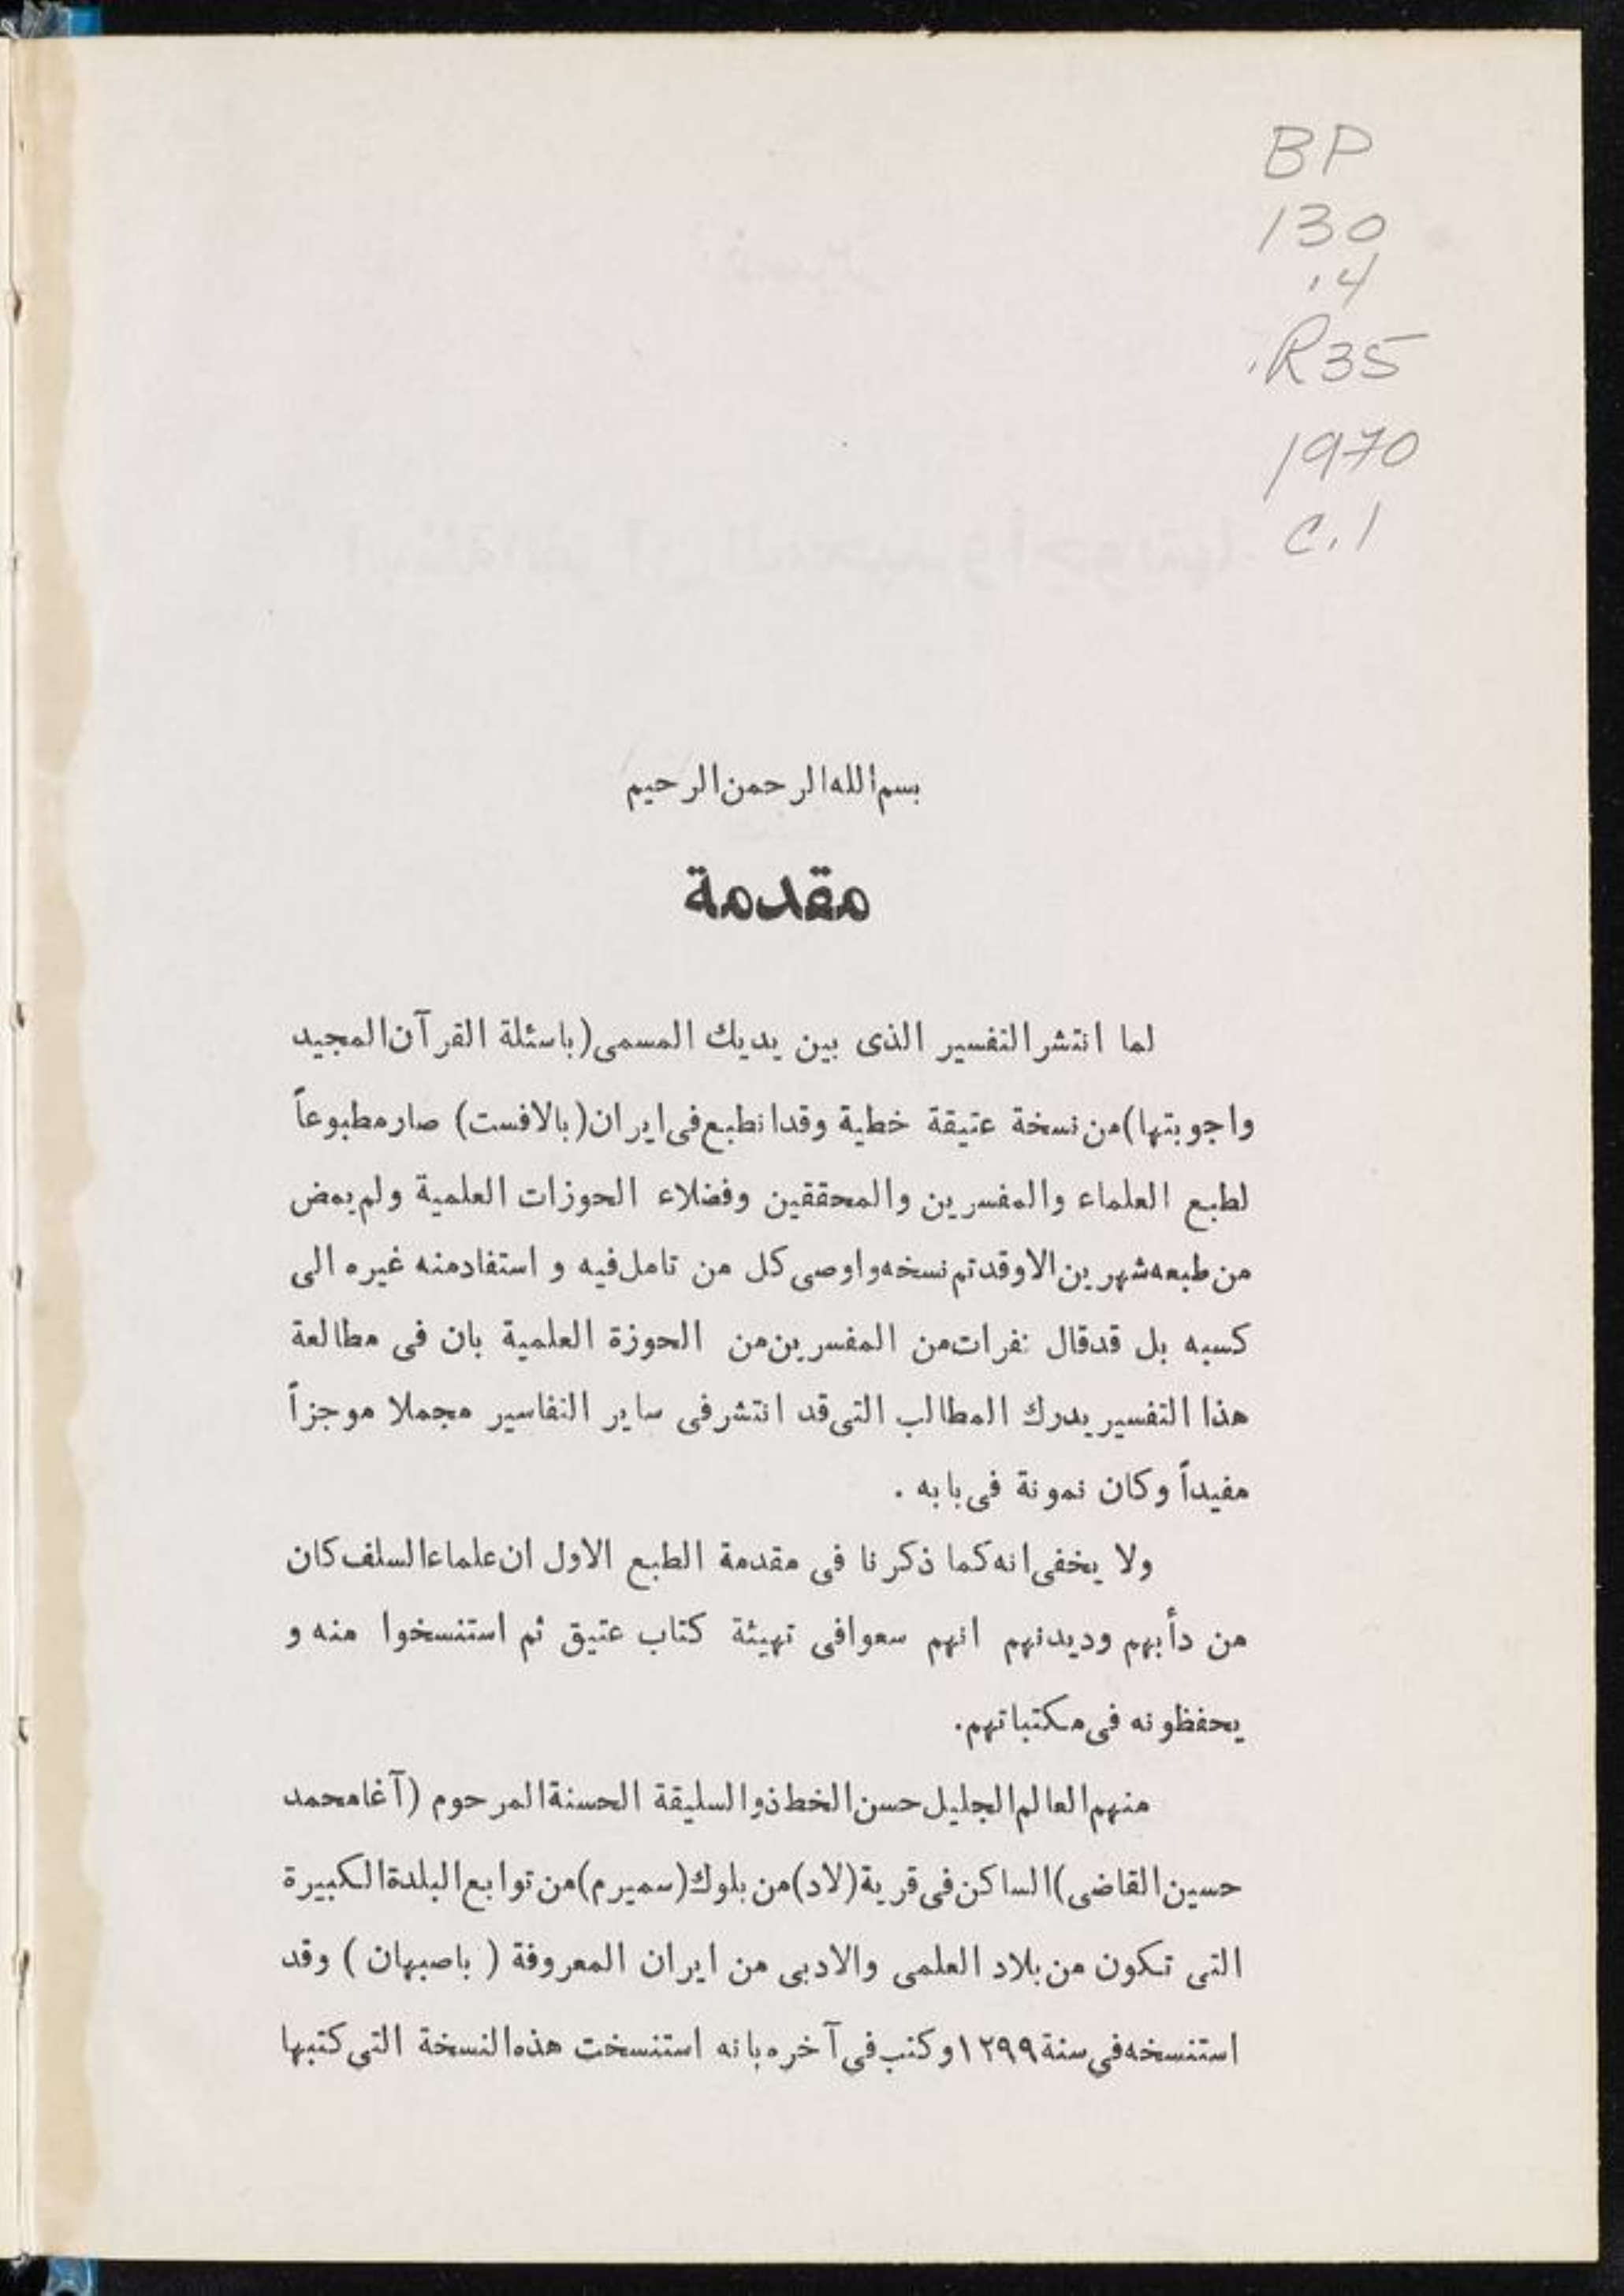 BP
130
.4
.R35
1970
c.1
بسم الله الرحمن الرحيم
مقدمة
لما انتشر التفسير الذى بين يديك المسمى (باسئلة القرآن المجيد
واجوبتها) من نسخة عتيقة خطية وقد انطبع فى ايران (بالافست) صار مطبوعاً
لطبع العلماء والمفسرين والمحققين وفضلاء الحوزات العلمية ولم يمض
من طبعه شهرين الا وقد تم نسخه واوصى كل من تامل فيه و استفاد منه غيره الى
كسبه بل قد قال نفرات من المفسرين من الحوزة العلمية بان فى مطالعة
هذا التفسير يدرك المطالب التى قد انتشر فى ساير التفاسير مجملا موجزاً
مفيداً وكان نمونة فى بابه .
ولا يخفى انه كما ذكرنا فى مقدمة الطبع الاول ان علماء السلف كان
من دأبهم وديدنهم انهم سعوا فى تهيئة كتاب عتيق ثم استنسخوا منه و
يحفظونه فى مكتباتهم.
منهم العالم الجليل حسن الخط ذو السليقة الحسنة المرحوم (آغا محمد
حسين القاضى) الساكن فى قرية (لاد) من بلوك (سميرم) من توابع البلدة الكبيرة
التى تكون من بلاد العلمى والادبى من ايران المعروفة ( باصبهان ) وقد
استنسخه فى سنة ١٢٩٩ و كتب فى آخره بانه استنسخت هذه النسخة التى كتبها